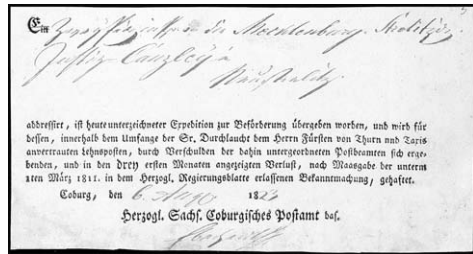 Ein
die Mecklenburg. Strelitz
Justiz Canzley
Neustrelitz
addressirt, ist heute unterzeichneter Expedition zur Beförderung übergeben worden, und wird für
dessen, innerhalb dem Umfange der Sr. Durchlaucht dem Herrn Fürsten von Thurn und Taxis
anvertrauten Lehnsposten, durch Verschulden der dahin untergeordneten Postbeamten sich erge-
benden, und in den drey ersten Monaten angezeigten Verlust, nach Maasgabe der unterm
1ten März 1811. in dem Herzogl. Regierungsblatte erlassenen Bekanntmachung, gehaftet.
Coburg, den 6. Augs 1823
Herzogl. Sachs. Coburgisches Postamt das.